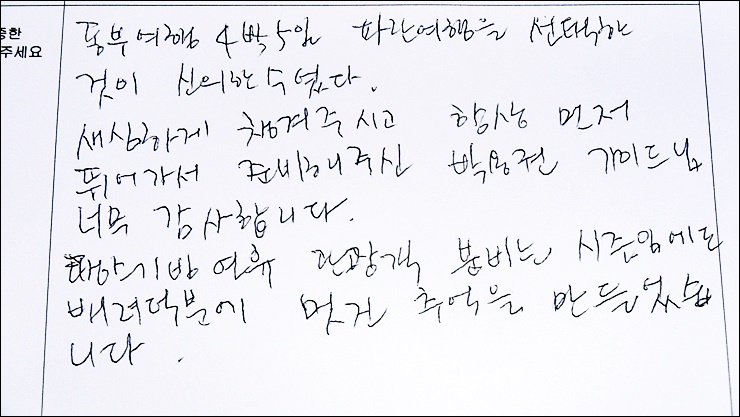 중한
주세요
동부여행 4박5일 파란여행을 선택한
것이 신의한수였다.
세심하게 챙겨주시고 항상 먼저
뛰어가서 준비해주신 박용권 가이드님
너무 감사합니다.
연휴 관광객 붐비는 시즌임에도
배려덕분에 멋진 추억을 만들었습
니다.